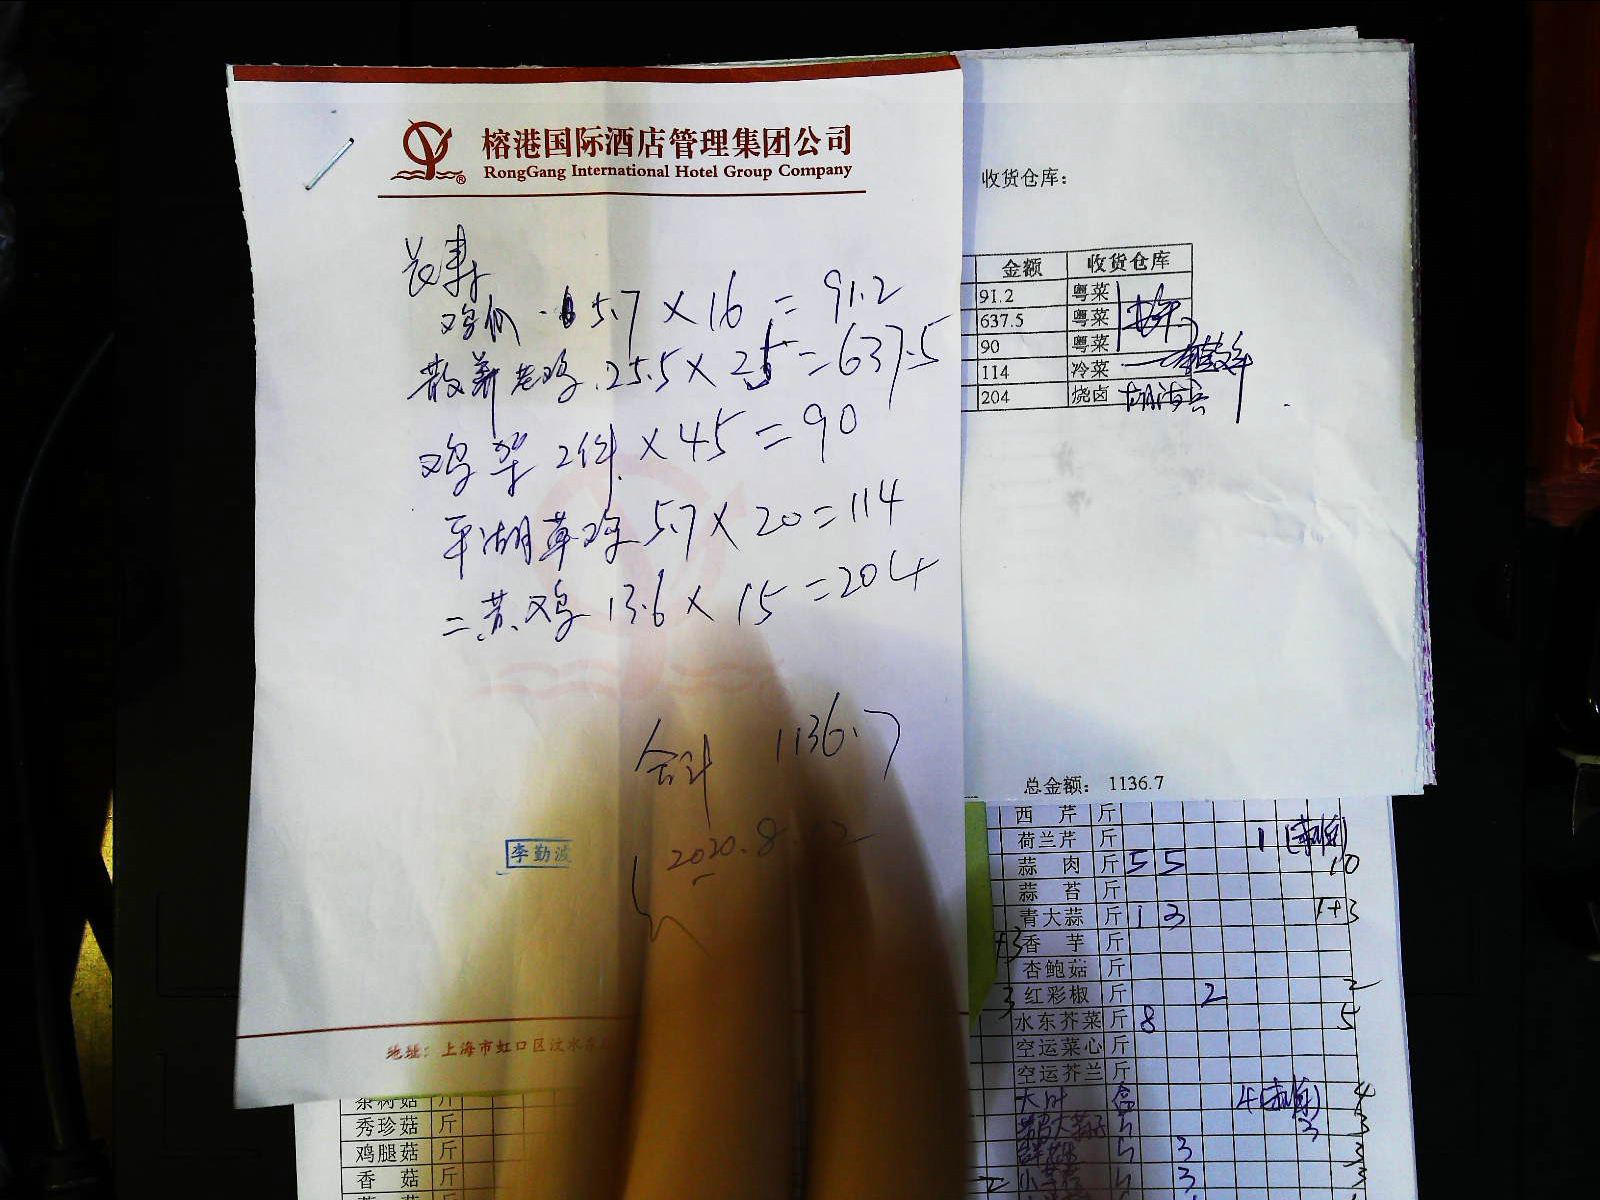 榕港国际酒店管理集团公司
RongGang International Hotel Group Company
长寿
鸡爪 5.7 × 16 = 91.2
散养老鸡 25.5 × 25 = 637.5
鸡架 2件 × 45 = 90
平湖草鸡 5.7 × 20 = 114
二.苏.鸡 13.6 × 15 = 204
合计 1136.7
李勤波
2020.8.12
地址：上海市虹口区汶水东
收货仓库：
金额 收货仓库
91.2 粤菜
637.5 粤菜
90 粤菜
114 冷菜
204 烧卤
总金额： 1136.7
西 芹 斤
荷兰芹 斤 1
蒜 肉 斤 5 5 10
蒜 苔 斤
青大蒜 斤 1 3 1+3
+3 香 芋 斤
杏鲍菇 斤
3 红彩椒 斤 2 2
水东芥菜 斤 8 5
空运菜心 斤
空运芥兰 斤
大叶 盒 4 4
3 3
3 3
2 3 3
茶树菇 斤
秀珍菇 斤
鸡腿菇 斤
香 菇 斤